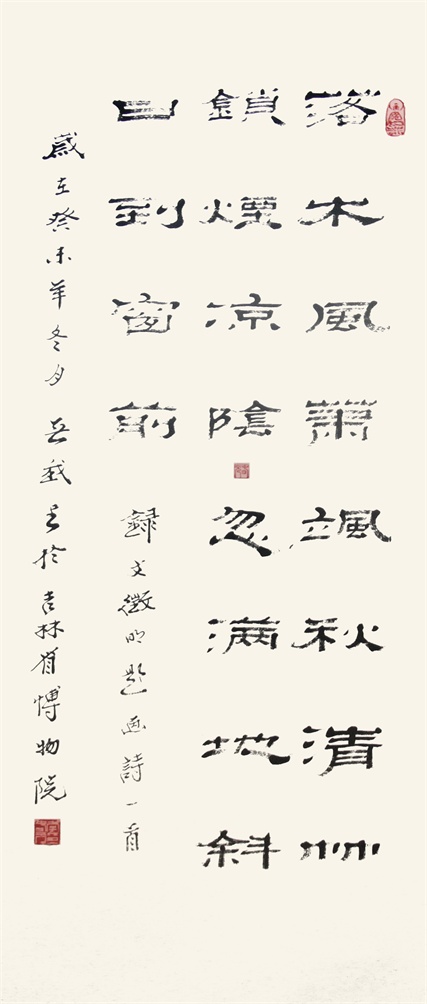 落木風蕭颯秋清州
鎖煙凉陰忽滿地斜
日到窗前
録文徵明題画詩一首
歲在癸未羊冬月書於吉林省博物院